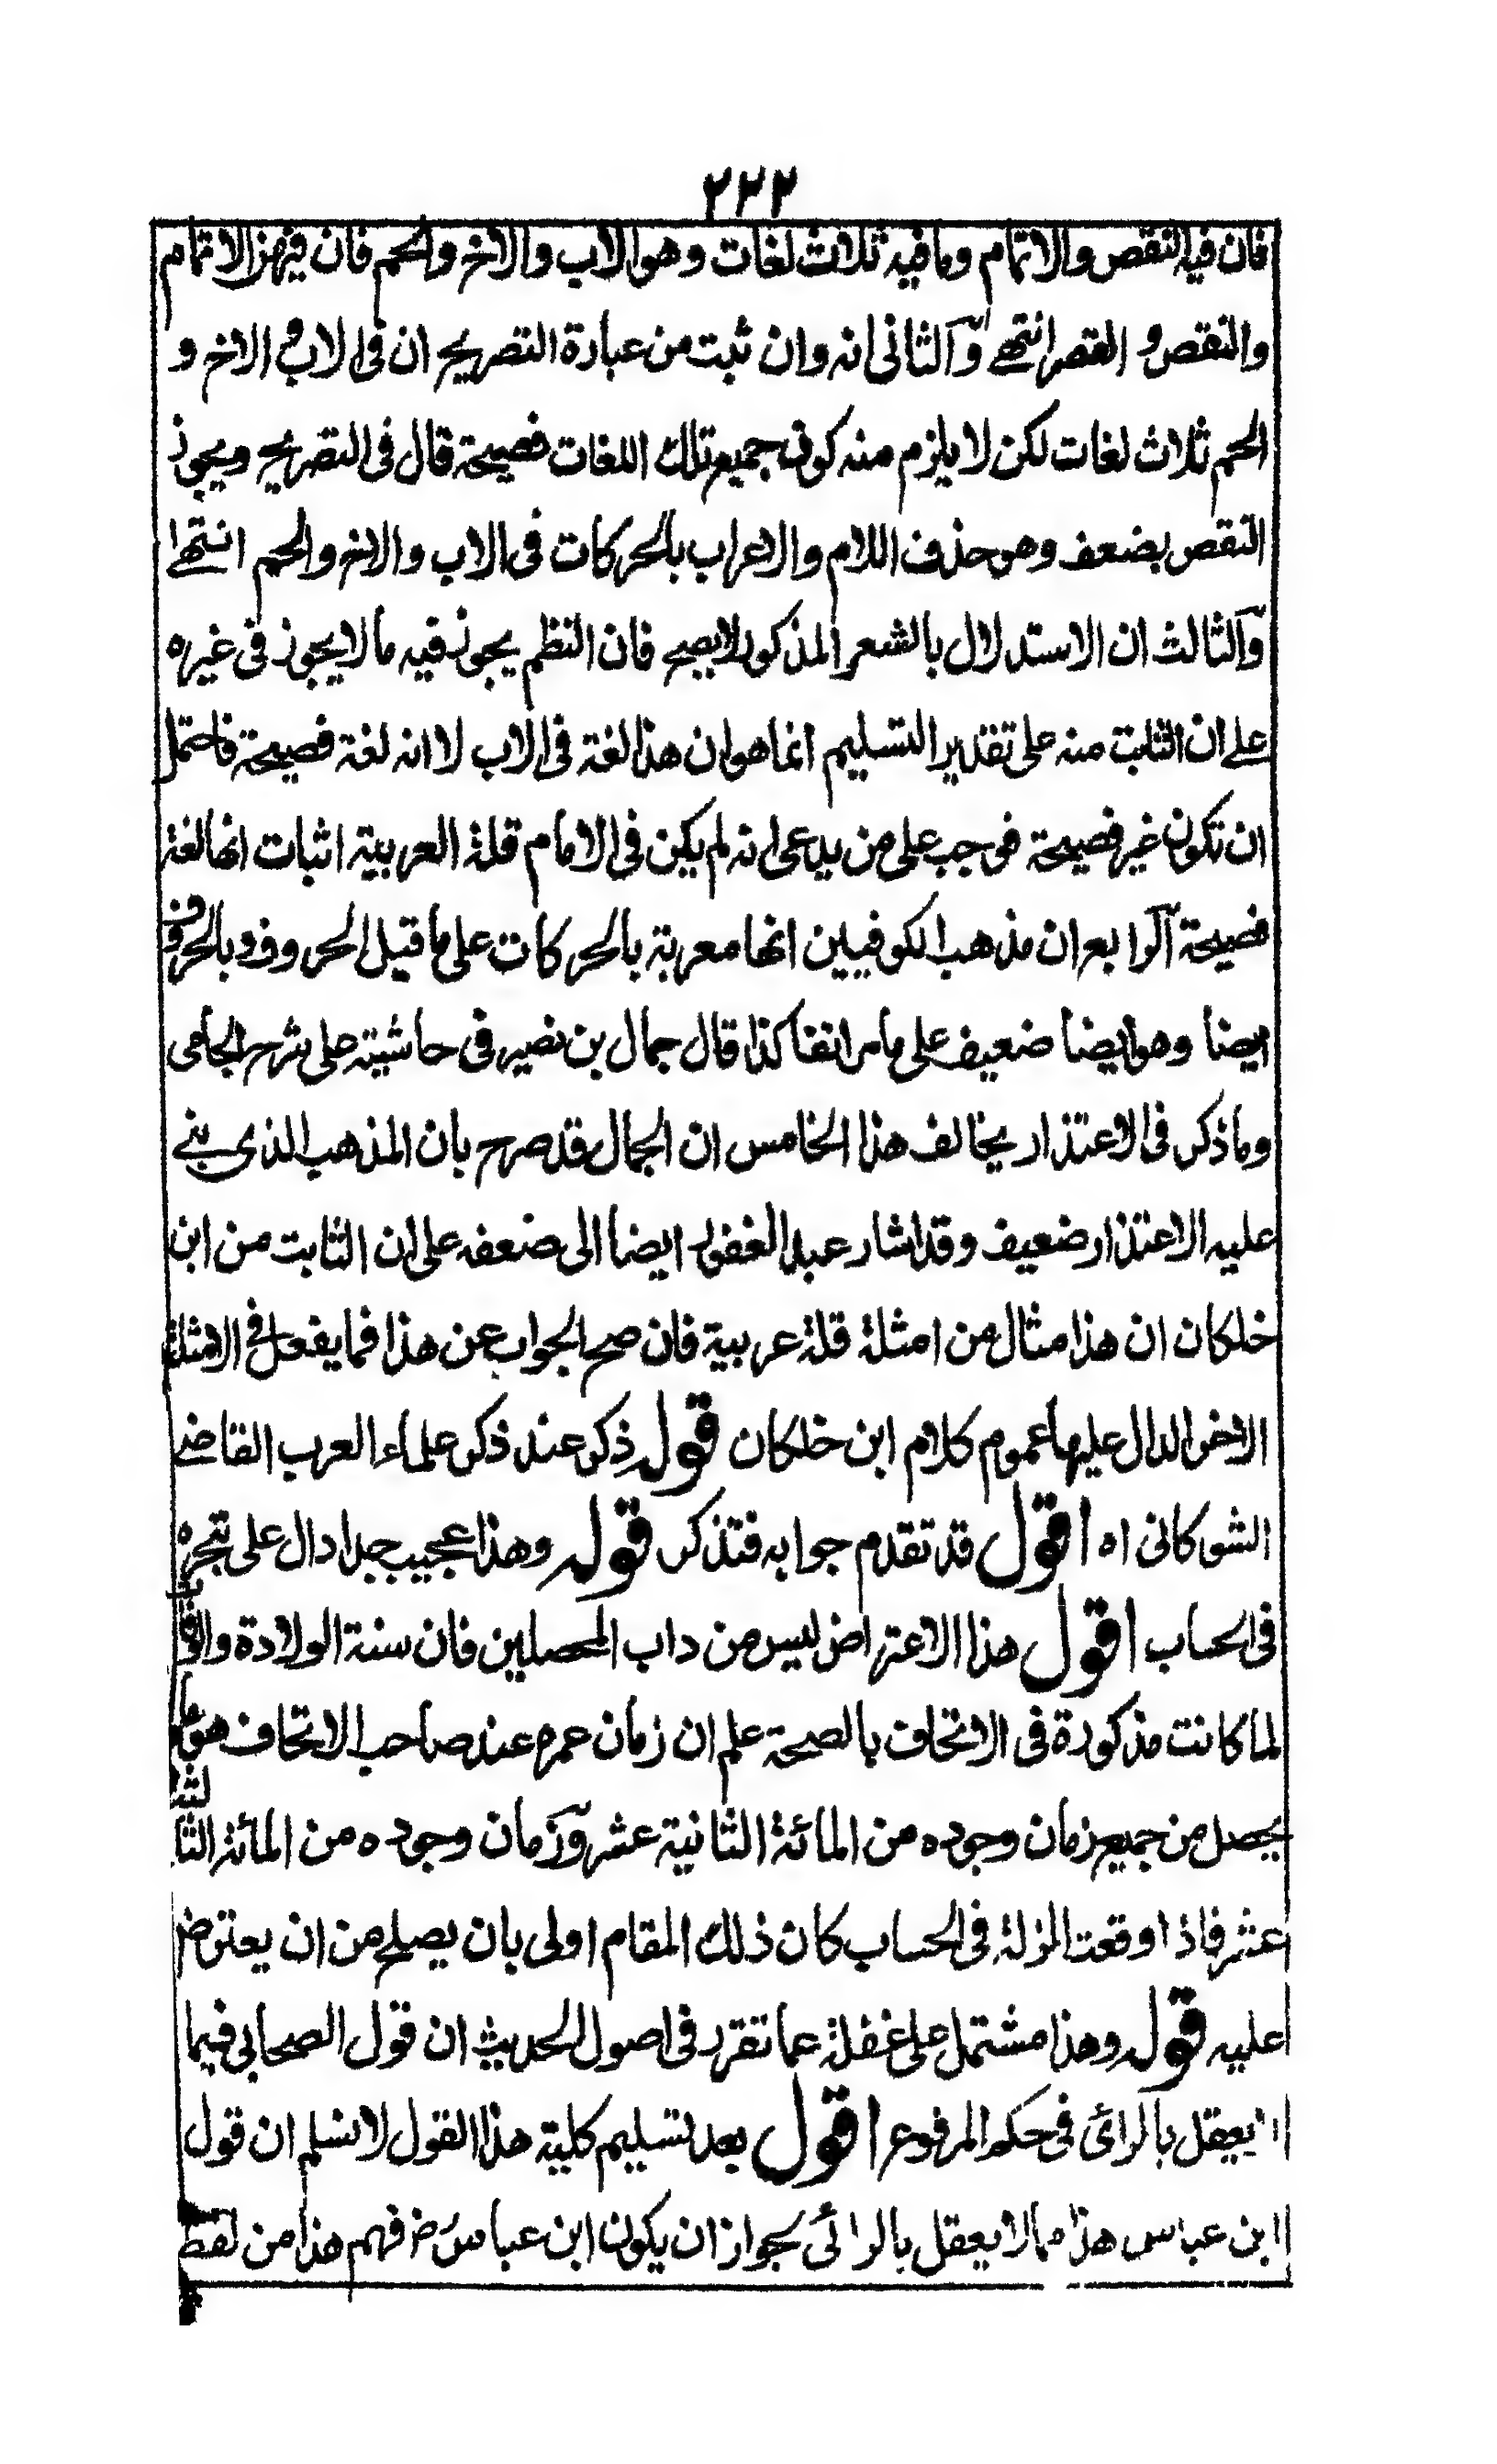 ٢٢٢
فان فيه النقص والاتمام وما فيه ثلاث لغات وهو الاب والاخ والحم فان فيهن الاتمام
والنقص و القصر انتهے والثانى انه وان ثبت من عبارة التصريح ان فى الاب و الاخ و
الحم ثلاث لغات لكن لا يلزم منه كون جميع تلك اللغات فصيحة قال فى التصريح ويجوز
النقص بضعف وهو حذف اللام والاعراب بالحركات فى الاب والاخ والحم انتهے
والثالث ان الاستدلال بالشعر المذكور لا يصح فان النظم يجوز فيه ما لا يجوز فى غيره
علے ان الثابت منه على تقدير التسليم انما هو ان هذا لغة فى الاب لا انه لغة فصيحة فاحتمل
ان تكون غير فصيحة فوجب على من يدعى انه لم يكن فى الامام قلة العربية اثبات انها لغة
فصيحة الرابع ان مذهب الكوفيين انها معربة بالحركات على ما قبل الحروف وبالحروف
ايضا وهو ايضا ضعيف على ما مر انفا كذا قال جمال بن نصير فى حاشيته على شرح الجامى
وما ذكر فى الاعتذار يخالف هذا الخامس ان الجمال قد صرح بان المذهب الذى بنے
عليه الاعتذار ضعيف وقد اشار عبد الغفور ايضا الى ضعفه على ان الثابت من ابن
خلكان ان هذا مثال من امثلة قلة عربية فان صح الجواب عن هذا فما يفعل فى الامثلة
الاخر الدال عليها عموم كلام ابن خلكان قوله ذكر عند ذكر علماء العرب القاضے
الشوكانى اه اقول قد تقدم جوابه فتذكر قوله وهذا عجيب جدا دال على تبحره
فى الحساب اقول هذا الاعتراض ليس من داب المحصلين فان سنة الولادة والوفاة
لما كانت مذكورة فى الاتحاف بالصحة علم ان زمان عمره عند صاحب الاتحاف هو ما
يحصل من جميع زمان وجوده من المائة الثانية عشر وزمان وجوده من المائة الثالثة
عشر فاذا وقعت المزلة فى الحساب كان ذلك المقام اولى بان يصلح من ان يعترض
عليه قوله وهذا مشتمل على غفلة عما تقرر فى اصول الحديث ان قول الصحابى فيما
لا يعقل بالرائى فى حكم المرفوع اقول بعد تسليم كلية هذا القول لا نسلم ان قول
ابن عباس هذا مما لا يعقل بالرائى لجواز ان يكون ابن عباس رض فهم هذا من لفظ